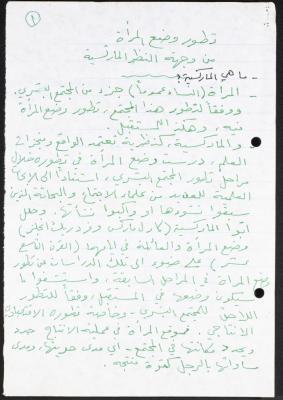 ١
تطور وضع المرأة
من وجهة النظر الماركسية
- ما هي الماركسية؟
- المرأة (النساء عموماً) جزء من المجتمع البشري.
ووفقاً لتطور هذا المجتمع، تطور وضع المرأة
فيه، وهكذا المستقبل
والماركسية، كنظرية تعتمد الواقع ومنجزات
العلم، درست وضع المرأة في تطوره خلال
مراحل تطور المجتمع البشري، استناداً الى
العلمية للعديد من علماء الاجتماع والبحاثة الذين
سبقوا نشوءها او واكبوا نشأتها. وحلل
ابوا الماركسية (كارل ماركس وفردريك انجلز)
وضع المرأة والعائلة في ايامهما (القرن التاسع
عشر) على ضوء الى تلك الدراسات عن تطور
وضع المرأة في المراحل السابقة، واستشفوا ما
سيكون وضعها في المستقبل وفقاً للتطور
اللاحق للمجتمع البشري - وخاصة تطوره الاقتصادي
الانتاجي. فموقع المرأة في عملية الانتاج حدد
ويحدد مكانتها في المجتمع - اي مدى حريتها، ومدى
مساواتها بالرجل كقوة منتجة.